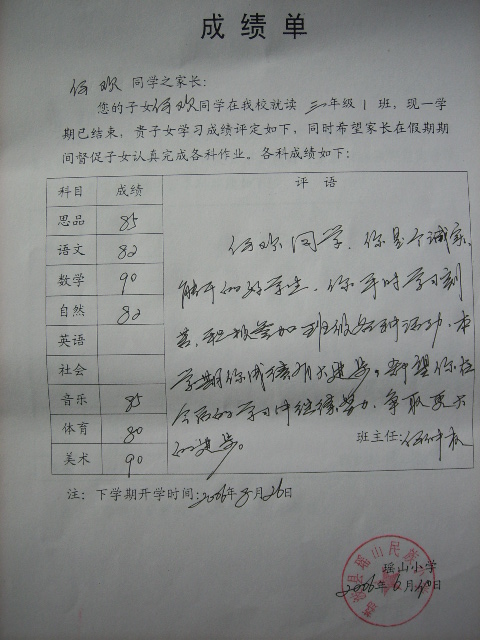 成绩单
伍欢 同学之家长:
您的子女伍欢同学在我校就读 三年级 1 班，现一学
期已结束，贵子女学习成绩评定如下，同时希望家长在假期期
间督促子女认真完成各科作业。各科成绩如下:
科目 成绩 评 语
思品 85
语文 82
数学 90
自然 82
英语
社会
音乐 85
体育 80
美术 90
伍欢同学，你是个诚实、
能干的好学生，你平时学习刻
苦，积极参加班级各种活动，本
学期你成绩有大进步。希望你在
今后的学习中继续努力，争取更大
的进步。
班主任:
注: 下学期开学时间:2006年8月26日
瑶山小学
2006年6月30日